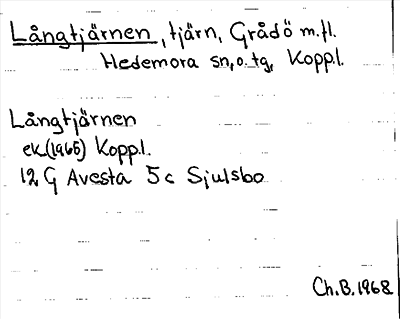 Långtjärnen, tjärn, Grådö m.fl.
Hedemora sn, o. tg, Koppl.
Långtjärnen
ek (1965) Koppl.
12 G Avesta 5c Sjulsbo
Ch.B.1968